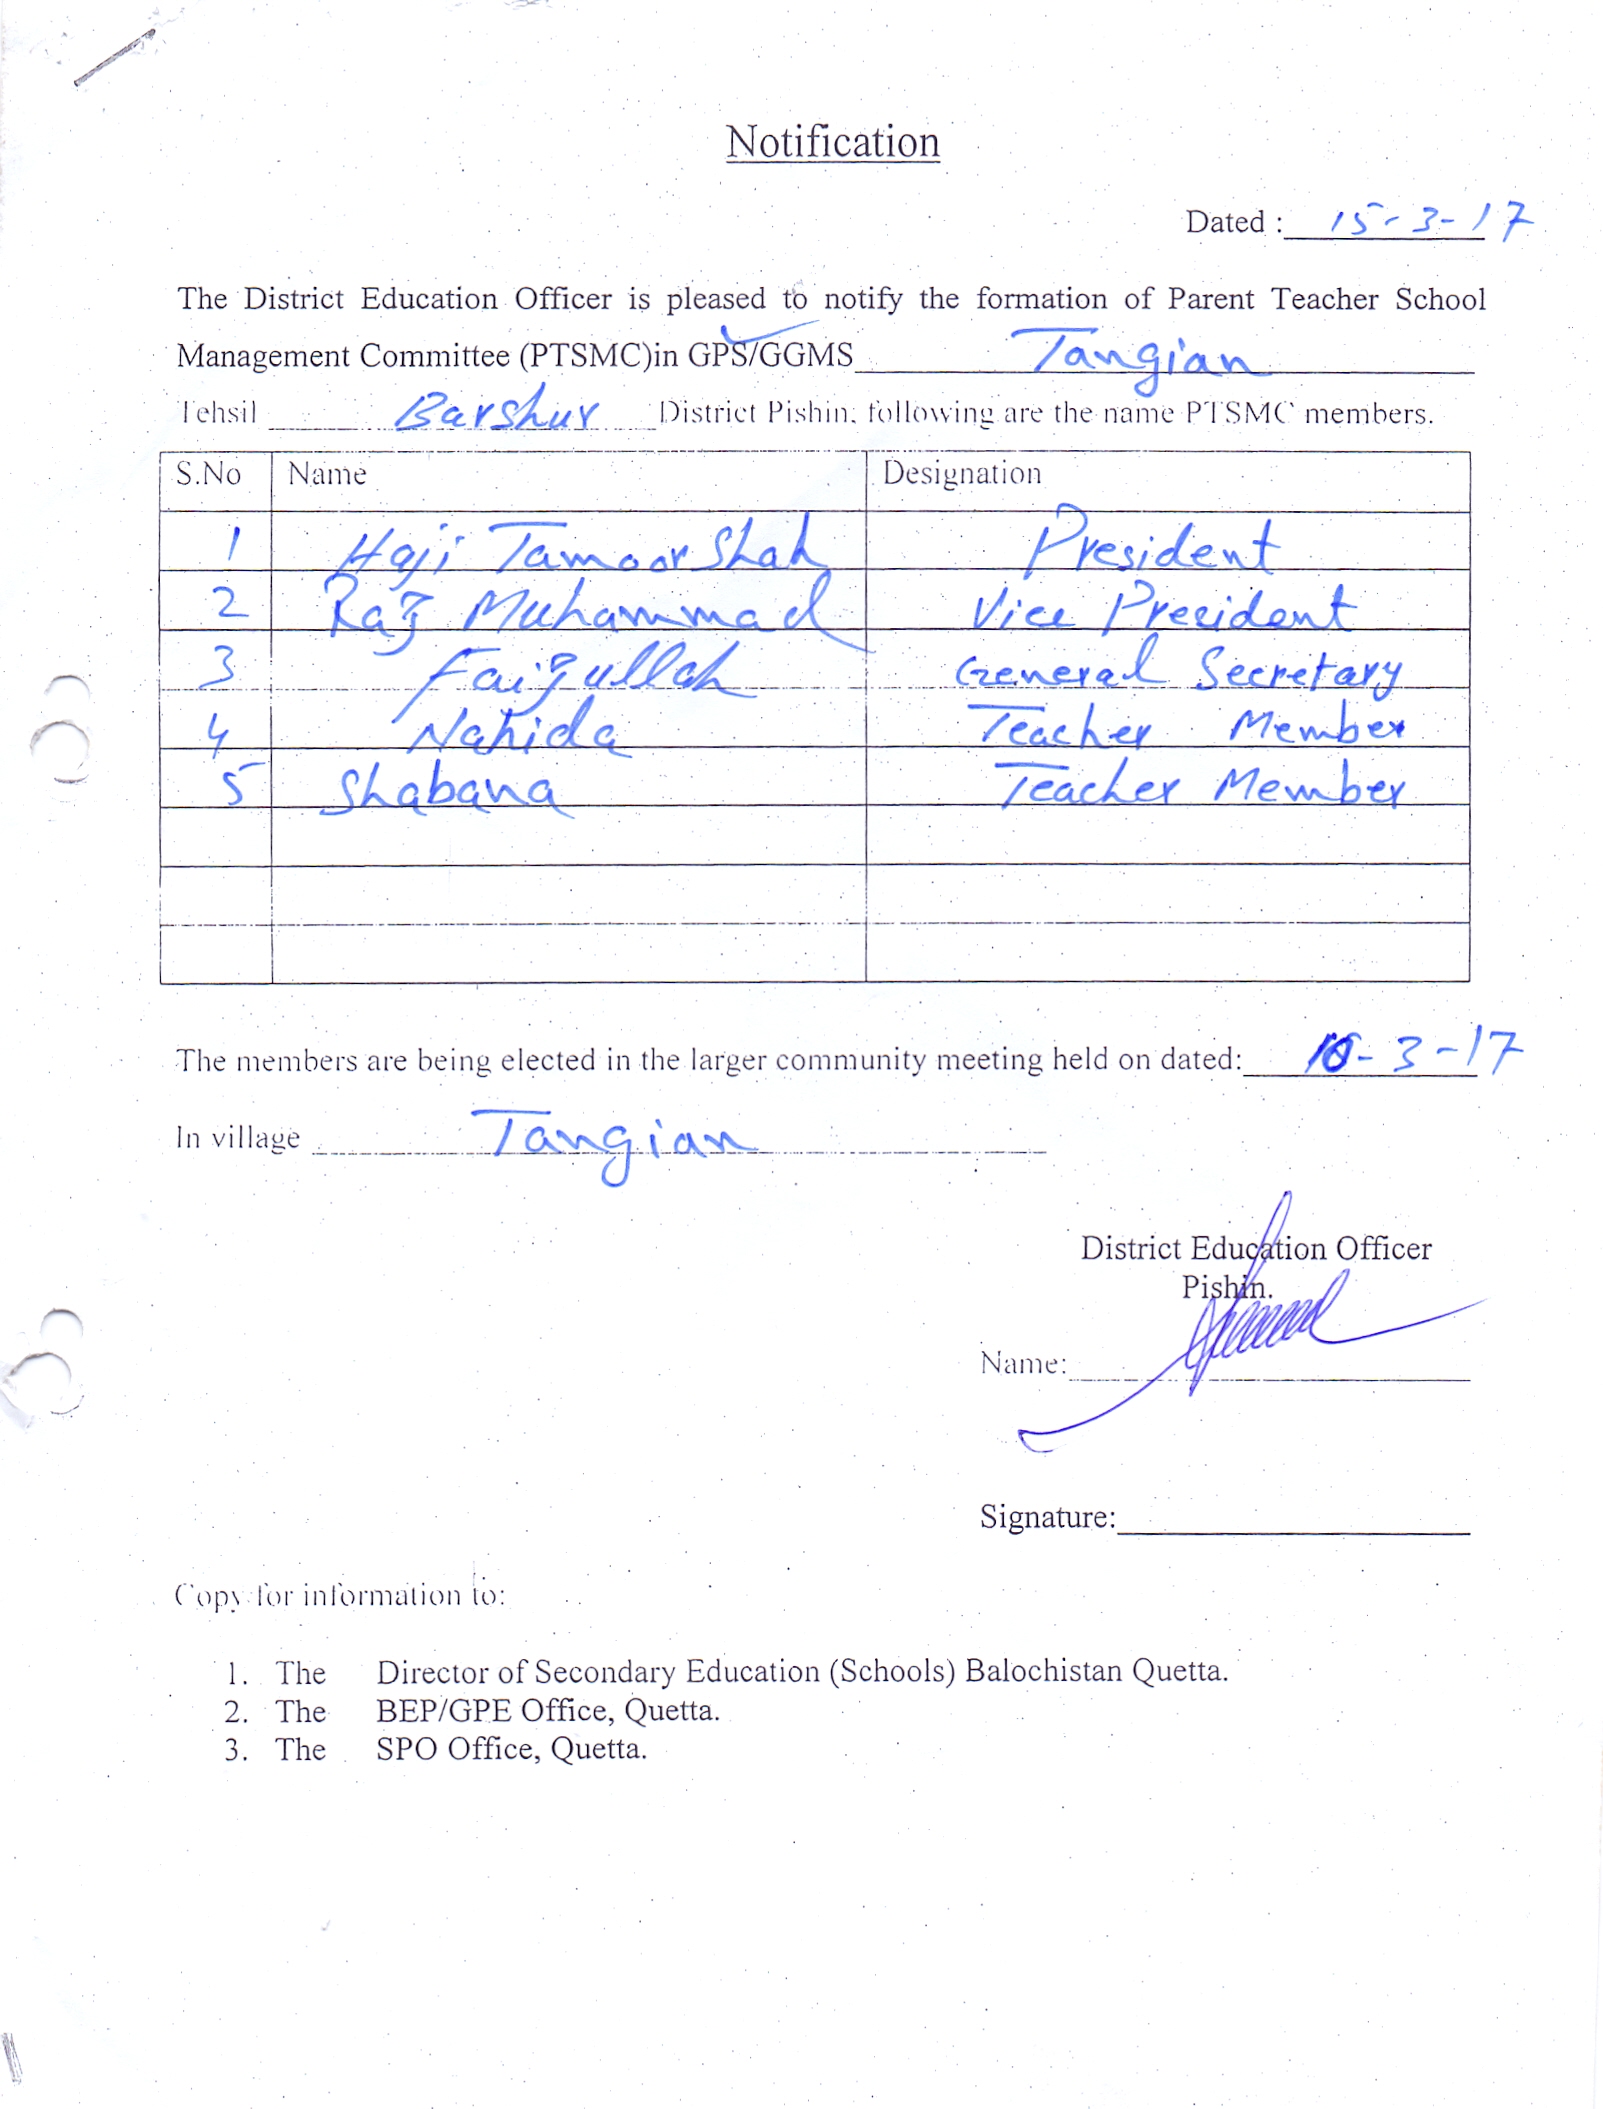 Notification
Dated : 15-3-17
The District Education Officer is pleased to notify the formation of Parent Teacher School
Management Committee (PTSMC)in GPS/GGMS Tangian
Tehsil Barshur District Pishin, following are the name PTSMC members.
S.No Name Designation
1 Haji Tamoor Shah President
2 Raz Muhammad Vice President
3 Faizullah General Secretary
4 Nahida Teacher Member
5 Shabana Teacher Member
The members are being elected in the larger community meeting held on dated: -3-17
In village Tangian
District Education Officer
Pishin.
Name:
Signature:
Copy for information to:
1. The Director of Secondary Education (Schools) Balochistan Quetta.
2. The BEP/GPE Office, Quetta.
3. The SPO Office, Quetta.